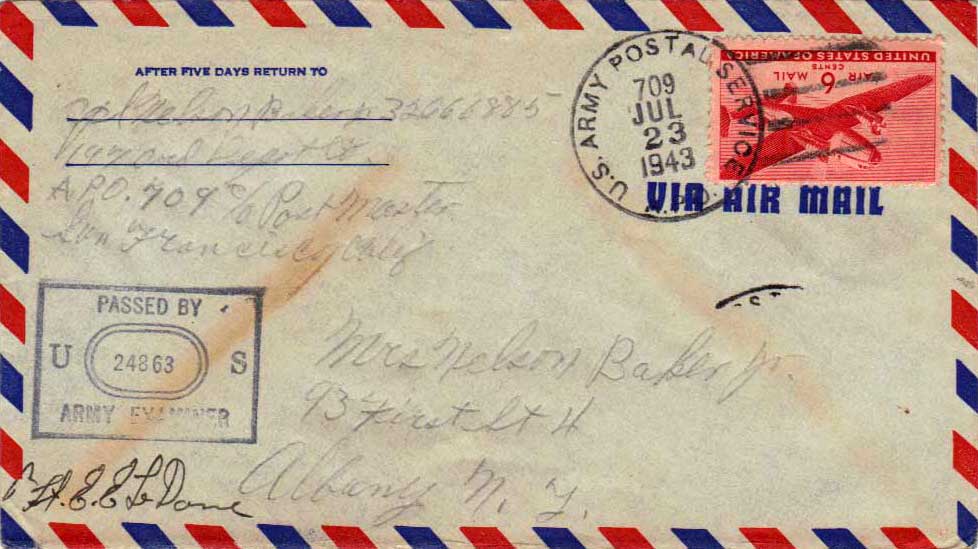 AFTER FIVE DAYS RETURN TO
Nelson 32066885
A.P.O. 709 c/o Post Master
San Francisco, Calif
U.S. ARMY POSTAL SERVICE
709
JUL
23
1943
A.P.O.
UNITED STATES OF AMERICA
6 CENTS
AIR MAIL
VIA AIR MAIL
PASSED BY
U 24863 S
ARMY EXAMINER
Mrs Nelson Baker Jr.
93 First St
Albany N. Y.